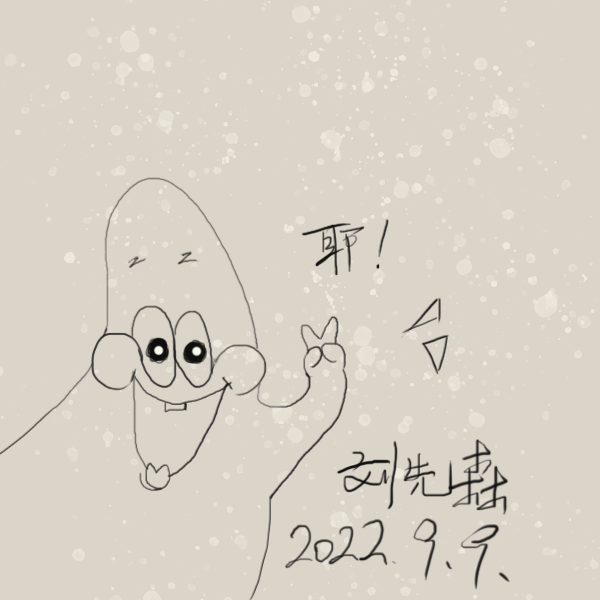 耶！
刘先森
2022.9.9.